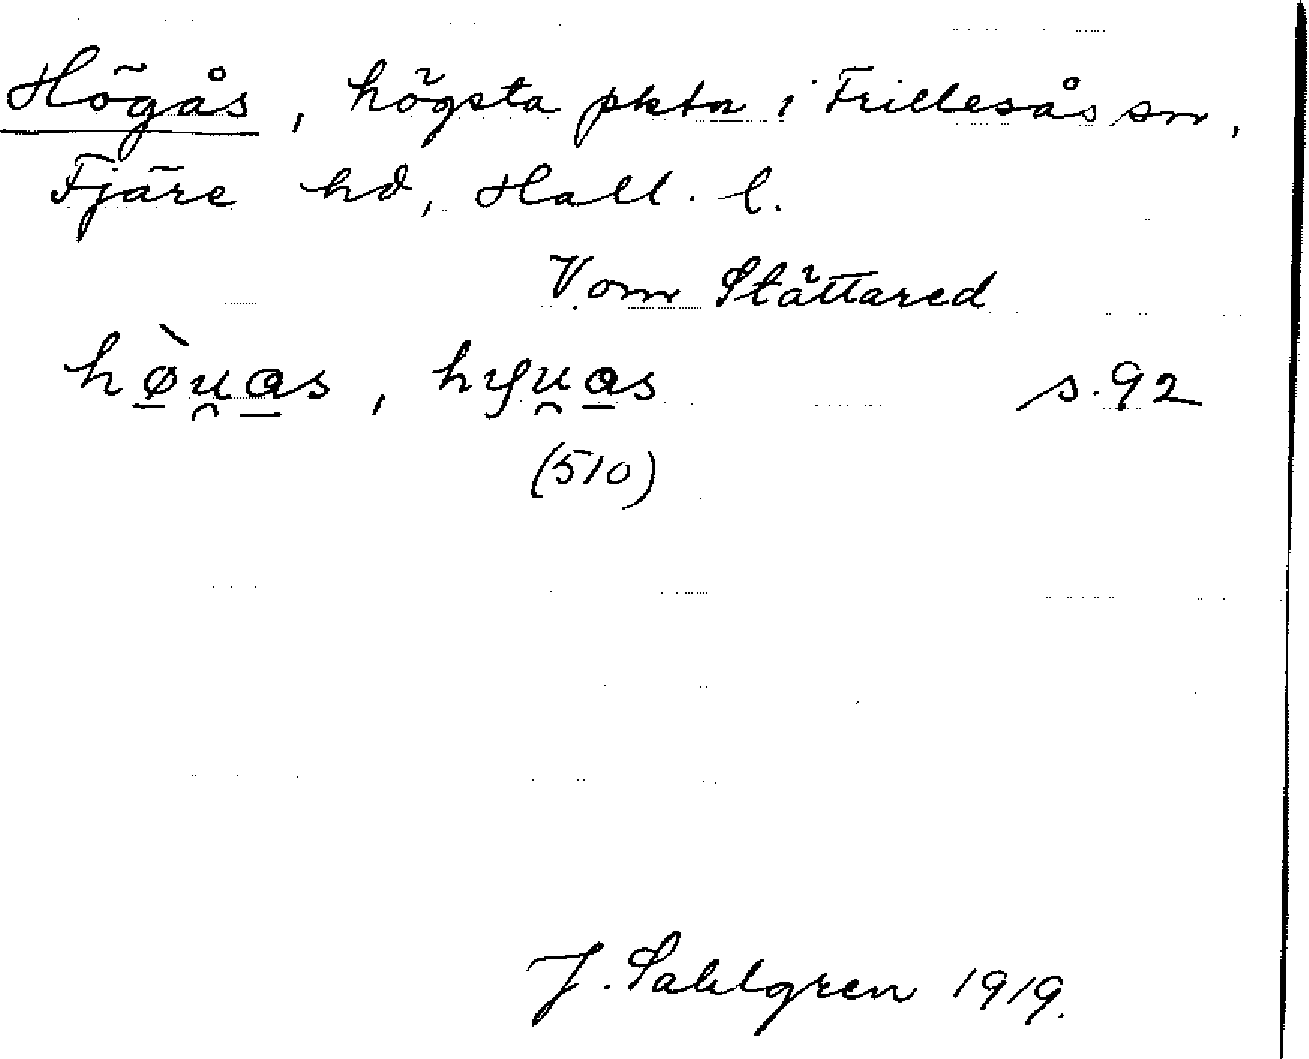 Högås, högsta pktn i Frillesås sn,
Fjäre hd, Hall. l.
V om Stättared
hø̠̀u̯a̠s, hyu̯a̠s s. 92
(510)
J. Sahlgren 1919.